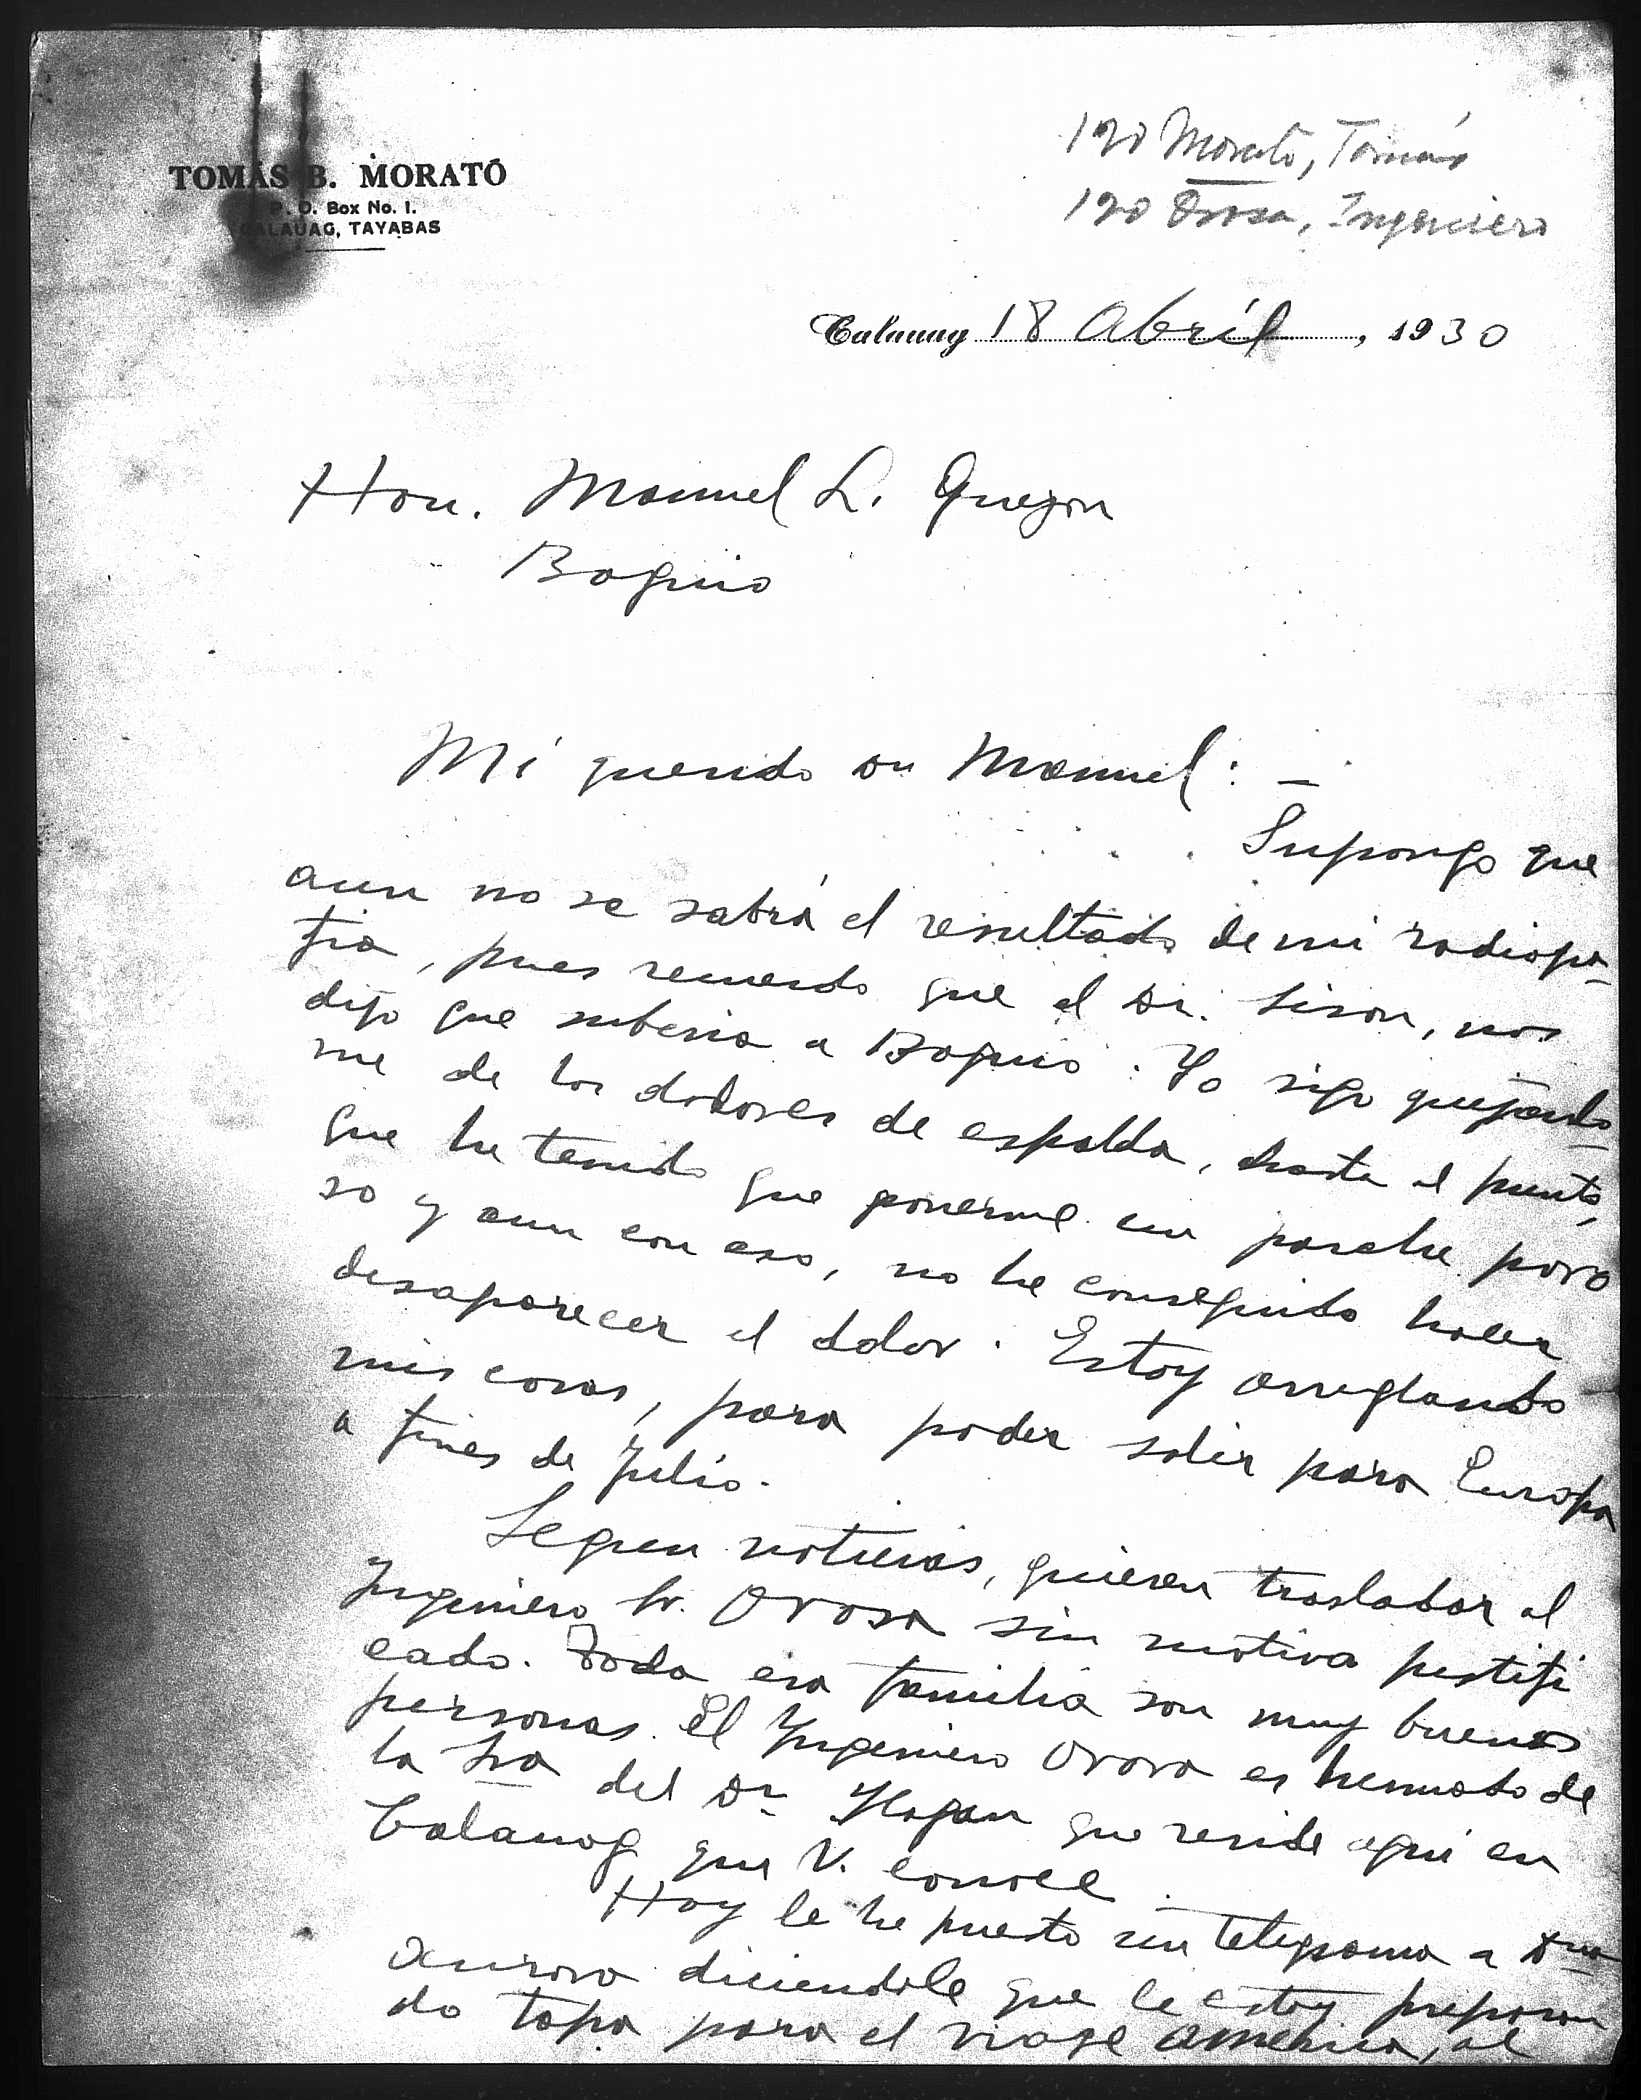 190 Morató, Tomás
190 Orosa, Ingeniero
TOMÁS B. MORATÓ
P. O. Box No. 1.
CALAUAG, TAYABAS
Calauag 18 Abríl, 1930
Hon. Manuel L. Quezon
Baguio
Mi querido Dn Manuel: —
Supongo que
aun no se sabrá el resultado de mi radiogra-
fia, pues recuerdo que el Dr. Sison, nos
dijo que subiria a Baguio. Yo sigo quejando-
me de los dolores de espalda, hasta el punto,
que he tenido que ponerme un parche poro
so y aun con eso, no he conseguido hacer
desaparecer el dolor. Estoy arreglando
mis cosas, para poder salir para Europa
a fines de Julio.
Segun noticias, quieren trasladar al
Ingeniero Sr. Orosa sin motivo justifi
cado. Toda esa familia son muy buenas
personas. El Ingeniero Orosa es hermano de
la Sra del Dr Ylagan que reside aqui en
Calauag que V. conoce.
Hoy le he puesto un telegrama a Dña
Aurora diciendole que le estoy preparan
do tapa para el viaje America, al